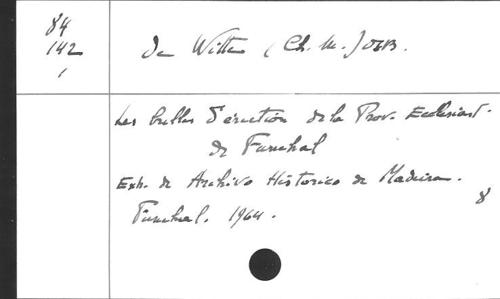 84
142
1
De Witte (Ch. M.) OSB.
Les bulles d'érection de la Prov. Ecclésiast.
de Funchal
Extr. de Archivo Historico de Madeira.
Funchal. 1964.
8